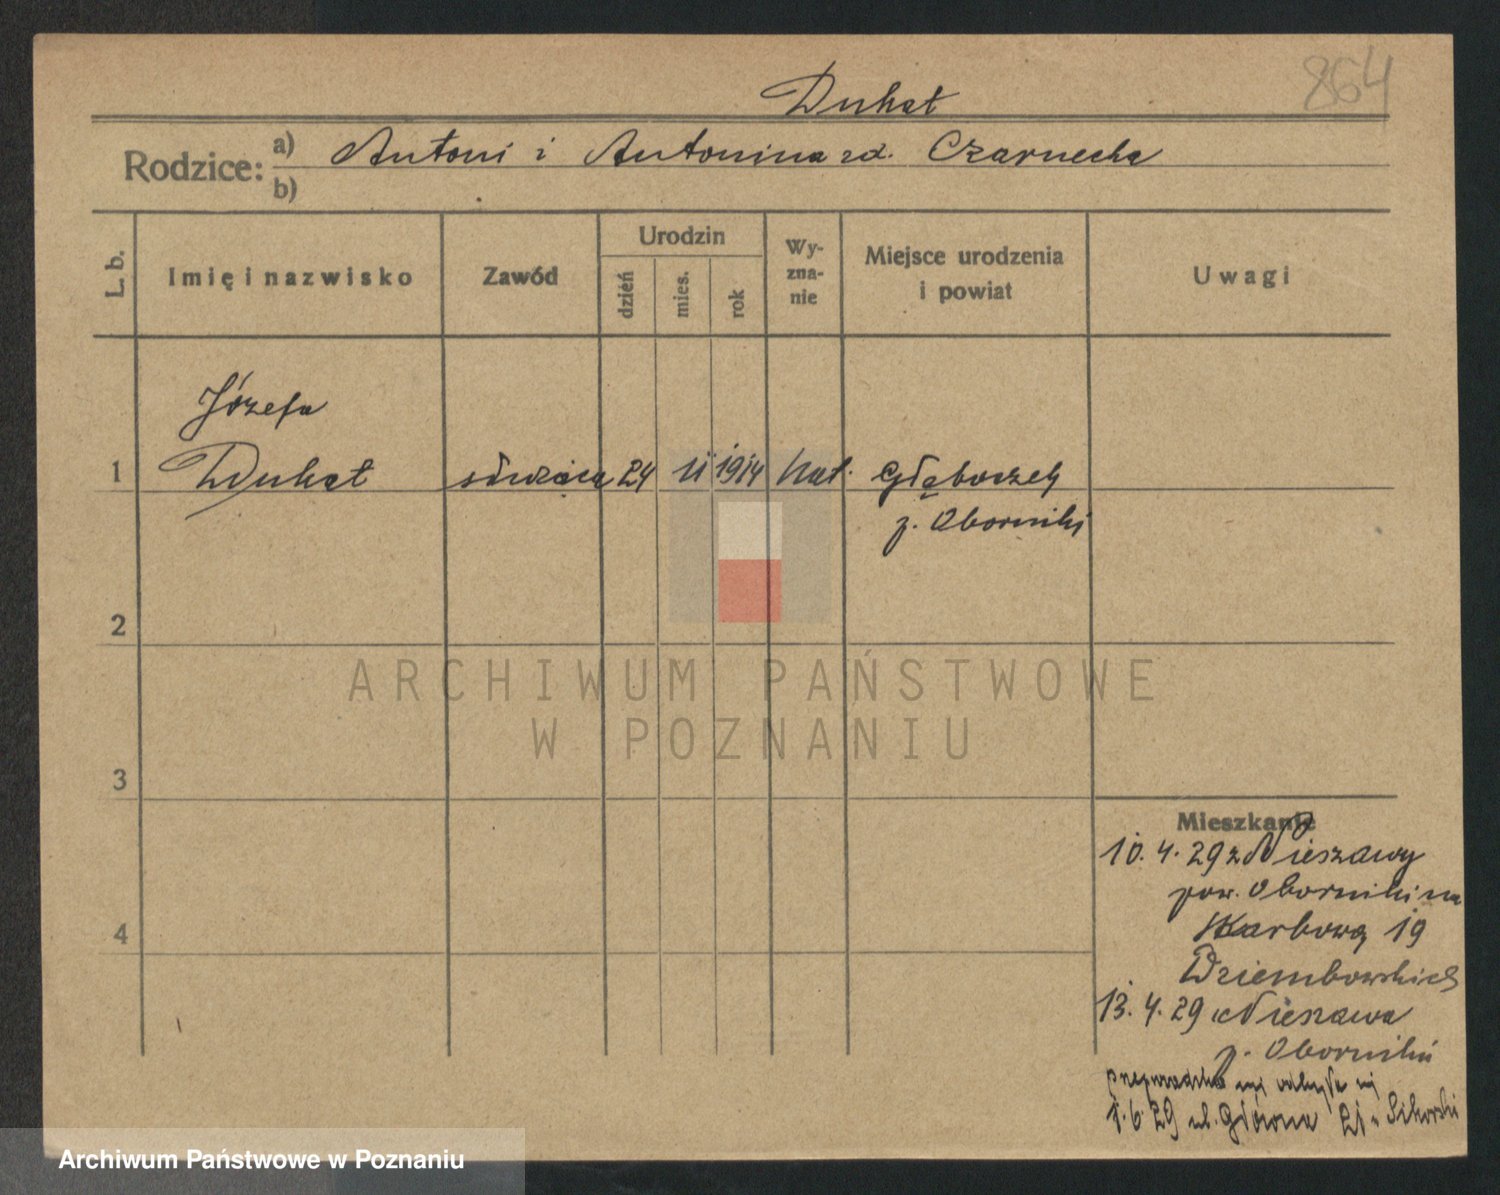 864
Dukat
Rodzice: a) Antoni i Antonina zd. Czarnecka
b)
L. b. Imię i nazwisko Zawód Urodzin dzień mies. rok Wy-zna-nie Miejsce urodzenia i powiat Uwagi
Józefa
1 Dukat służąca 24 11 1914 kat. Głęboczek
p. Oborniki
2
ARCHIWUM PAŃSTWOWE
W POZNANIU
3
Mieszkanie
10. 4. 29 z Nieszawy
pow. Oborniki na
4 Skarbową 19
Dziembowskich
13. 4. 29 Nieszawa
p. Oborniki
przeprowadzka nie odbyła się
1. 6. 29 ul. Główna 21 Sikorski
Archiwum Państwowe w Poznaniu